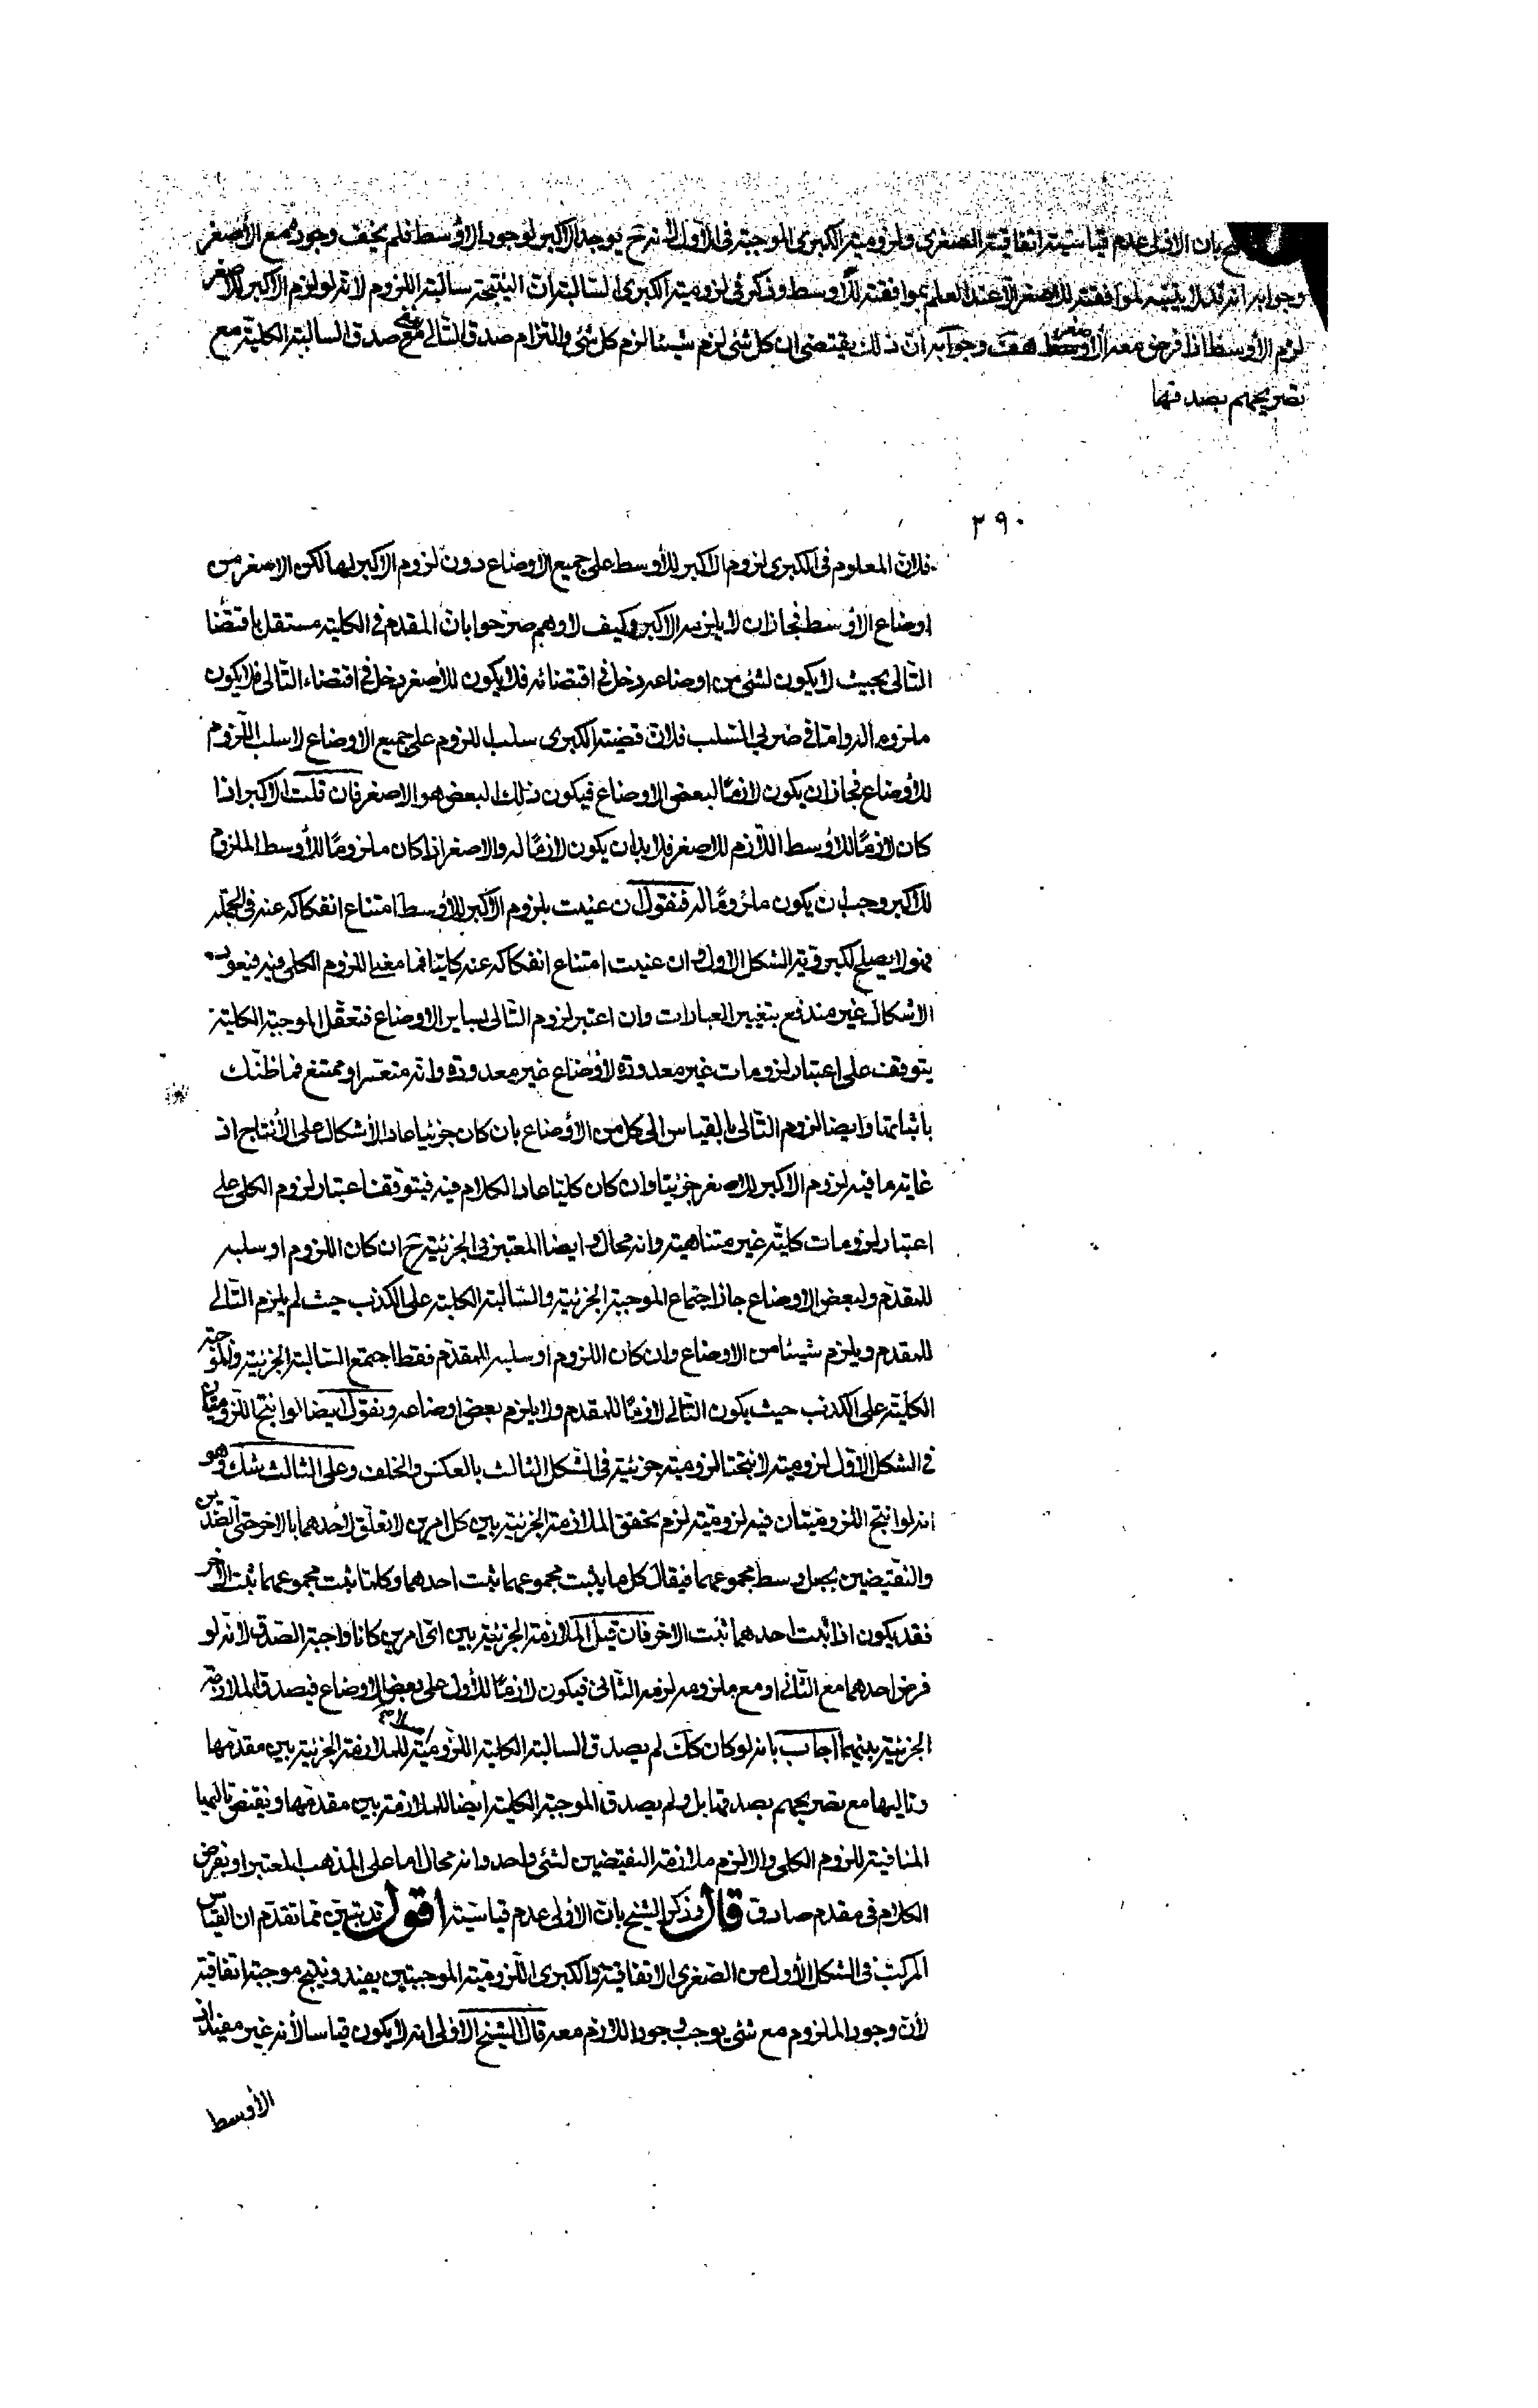 بان الاولى عدم قياسيته اتفاقية الصغرى ولزومية الكبرى الموجبة فى الاول لانه ح يوجد الاكبر لوجود الاوسط فلم يخف وجوده مع الأصغر
وجوابه انه قد لا يتنبه لموافقته للاصغر الا عند العلم بموافقته للأوسط وذكر فى لزومية الكبرى السالبة ان النتيجة سالبة اللزوم لانه لو لزم الاكبر للاصغر
لزم الأوسط اذا فرض معه الأصغر هف وجوابه ان ذلك يقتضى ان كل شئ لزم شيئا لزم كل شئ والتزام صدق التالى يمنع صدق السالبة الكلية مع
تصريحهم بصدقها
٢٩٠
فلان المعلوم فى الكبرى لزوم الاكبر للأوسط على جميع الاوضاع دون لزوم الاكبر لها لكن الاصغر من
اوضاع الاوسط فجاز ان لا يلزمه الاكبر وكيف لا وهم صرحوا بان المقدم فى الكلية مستقل باقتضاء
التالى بحيث لا يكون لشئ من اوضاعه دخل فى اقتضائه فلا يكون للأصغر دخل فى اقتضاء التالى فلا يكون
ملزوما له واما فى ضربى السلب فلان قضية الكبرى سلب اللزوم على جميع الاوضاع لا سلب اللزوم
للأوضاع فجاز ان يكون لازمًا لبعض الاوضاع فيكون ذلك البعض هو الاصغر فان قلت الاكبر اذا
كان لازمًا للأوسط اللازم للاصغر فلا بد ان يكون لازمًا له والاصغر اذا كان ملزومًا للأوسط الملزوم
للاكبر وجب ان يكون ملزومًا له فنقول ان عنيت بلزوم الاكبر للأوسط امتناع انفكاكه عنه فى الجملة
فهو لا يصلح لكبروية الشكل الاول وان عنيت امتناع انفكاكه عنه كليا فما معنى اللزوم الكلى فيه فيعود
الاشكال غير مندفع بتغيير العبارات وان اعتبر لزوم التالى لساير الاوضاع فتعقل الموجبة الكلية
يتوقف على اعتبار لزومات غير معدودة لأوضاع غير معدودة وانه متعسر او ممتنع فما ظنك
باثباتها وايضا لزوم التالى بالقياس الى كل من الأوضاع بان كان جزئيا عاد الأشكال على الأنتاج اذ
غاية ما فيه لزوم الاكبر للاصغر جزئيا وان كان كليا عاد الكلام فيه فيتوقف اعتبار لزوم الكلى على
اعتبار لزومات كلية غير متناهية وانه محال وايضا المعتبر فى الجزئية ح ان كان اللزوم او سلبه
للمقدم ولبعض الاوضاع جاز اجتماع الموجبة الجزئية والسالبة الكلية على الكذب حيث لم يلزم التالى
للمقدم ويلزم شيئا من الاوضاع وان كان اللزوم او سلبه للمقدم فقط اجتمع السالبة الجزئية والموجبة
الكلية على الكذب حيث يكون التالى لازمًا للمقدم ولا يلزم بعض اوضاعه ونقول ايضا لو انتج اللزوميتان
فى الشكل الاول لزومية لانتجتا لزومية جزئية فى الشكل الثالث بالعكس والخلف وعلى الثالث شك وهو
انه لو انتج اللزوميتان فيه لزومية لزم تحقق الملازمة الجزئية بين كل امرين لا تعلق لأحدهما بالاخر حتى الضدين
والنقيضين بجعل وسط مجموعهما فيقال كل ما يثبت مجموعهما ثبت احدهما وكلما ثبت مجموعهما ثبت الآخر
فقد يكون اذا ثبت احدهما ثبت الاخر فان قيل الملازمة الجزئية بين اى امرين كانا واجبة الصدق لانه لو
فرض احدهما مع الثانى او مع ملزومه لزمه الثانى فيكون لازمًا للأول على بعض الاوضاع فيصدق الملازمة
الجزئية بينهما اجاب بانه لو كان كذلك لم يصدق السالبة الكلية اللزومية للملازمة الجزئية بين مقدمها
وتاليها مع تصريحهم بصدقها بل ولم يصدق الموجبة الكلية ايضا للملازمة بين مقدمها ونقيض تاليها
المنافية للزوم الكلى والا لزم ملازمة النقيضين لشئ واحد وانه محال اما على المذهب المعتبر او نفرض
الكلام فى مقدم صادق قال وذكر الشيخ بان الأولى عدم قياسيته اقول قد تبين مما تقدم ان القياس
المركب فى الشكل الأول من الصغرى الاتفاقية والكبرى اللزومية الموجبتين يفيد وينتج موجبة اتفاقية
لأن وجود الملزوم مع شئ يوجب وجود اللازم معه قال الشيخ الاولى انه لا يكون قياسا لأنه غير مفيد اذ
الأوسط